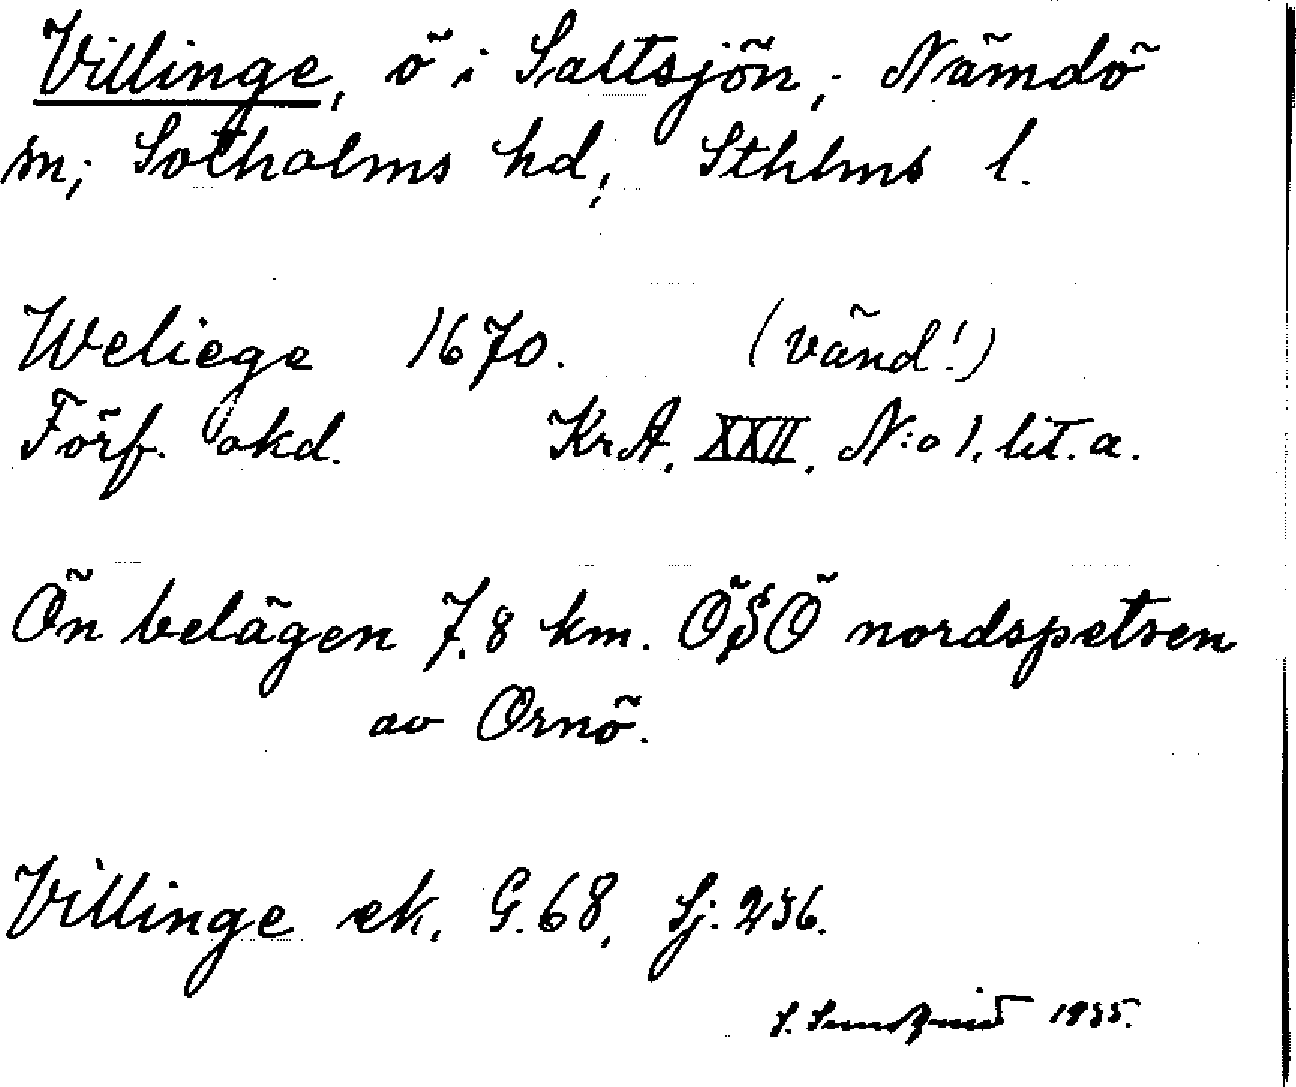 Villinge, ö i Saltsjön, Nämdö
sn; Sotholms hd, Sthlms l.
Weliege 1670. (vänd!)
Förf. okd. KrA. XXII. N:o 1. lit. a.
Ön belägen 7.8 km. ÖSÖ nordspetsen
av Ornö.
Villinge ek. G. 68, Sj. 236.
S. Sundqvist 1935.